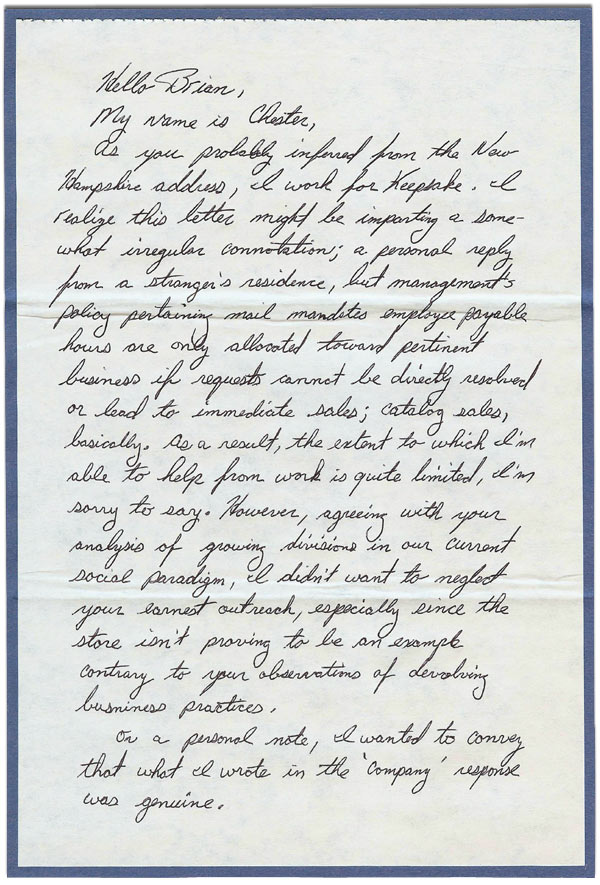 Hello Brian,
My name is Chester,
As you probably inferred from the New
Hampshire address, I work for Keepsake. I
realize this letter might be imparting a some-
what irregular connotation; a personal reply
from a stranger's residence, but management's
policy pertaining mail mandates employee payable
hours are only allocated toward pertinent
business if requests cannot be directly resolved
or lead to immediate sales; catalog sales,
basically. As a result, the extent to which I'm
able to help from work is quite limited, I'm
sorry to say. However, agreeing with your
analysis of growing divisions in our current
social paradigm, I didn't want to neglect
your earnest outreach, especially since the
store isn't proving to be an example
contrary to your observations of devolving
busniness practices.
On a personal note, I wanted to convey
that what I wrote in the 'company' response
was genuine.